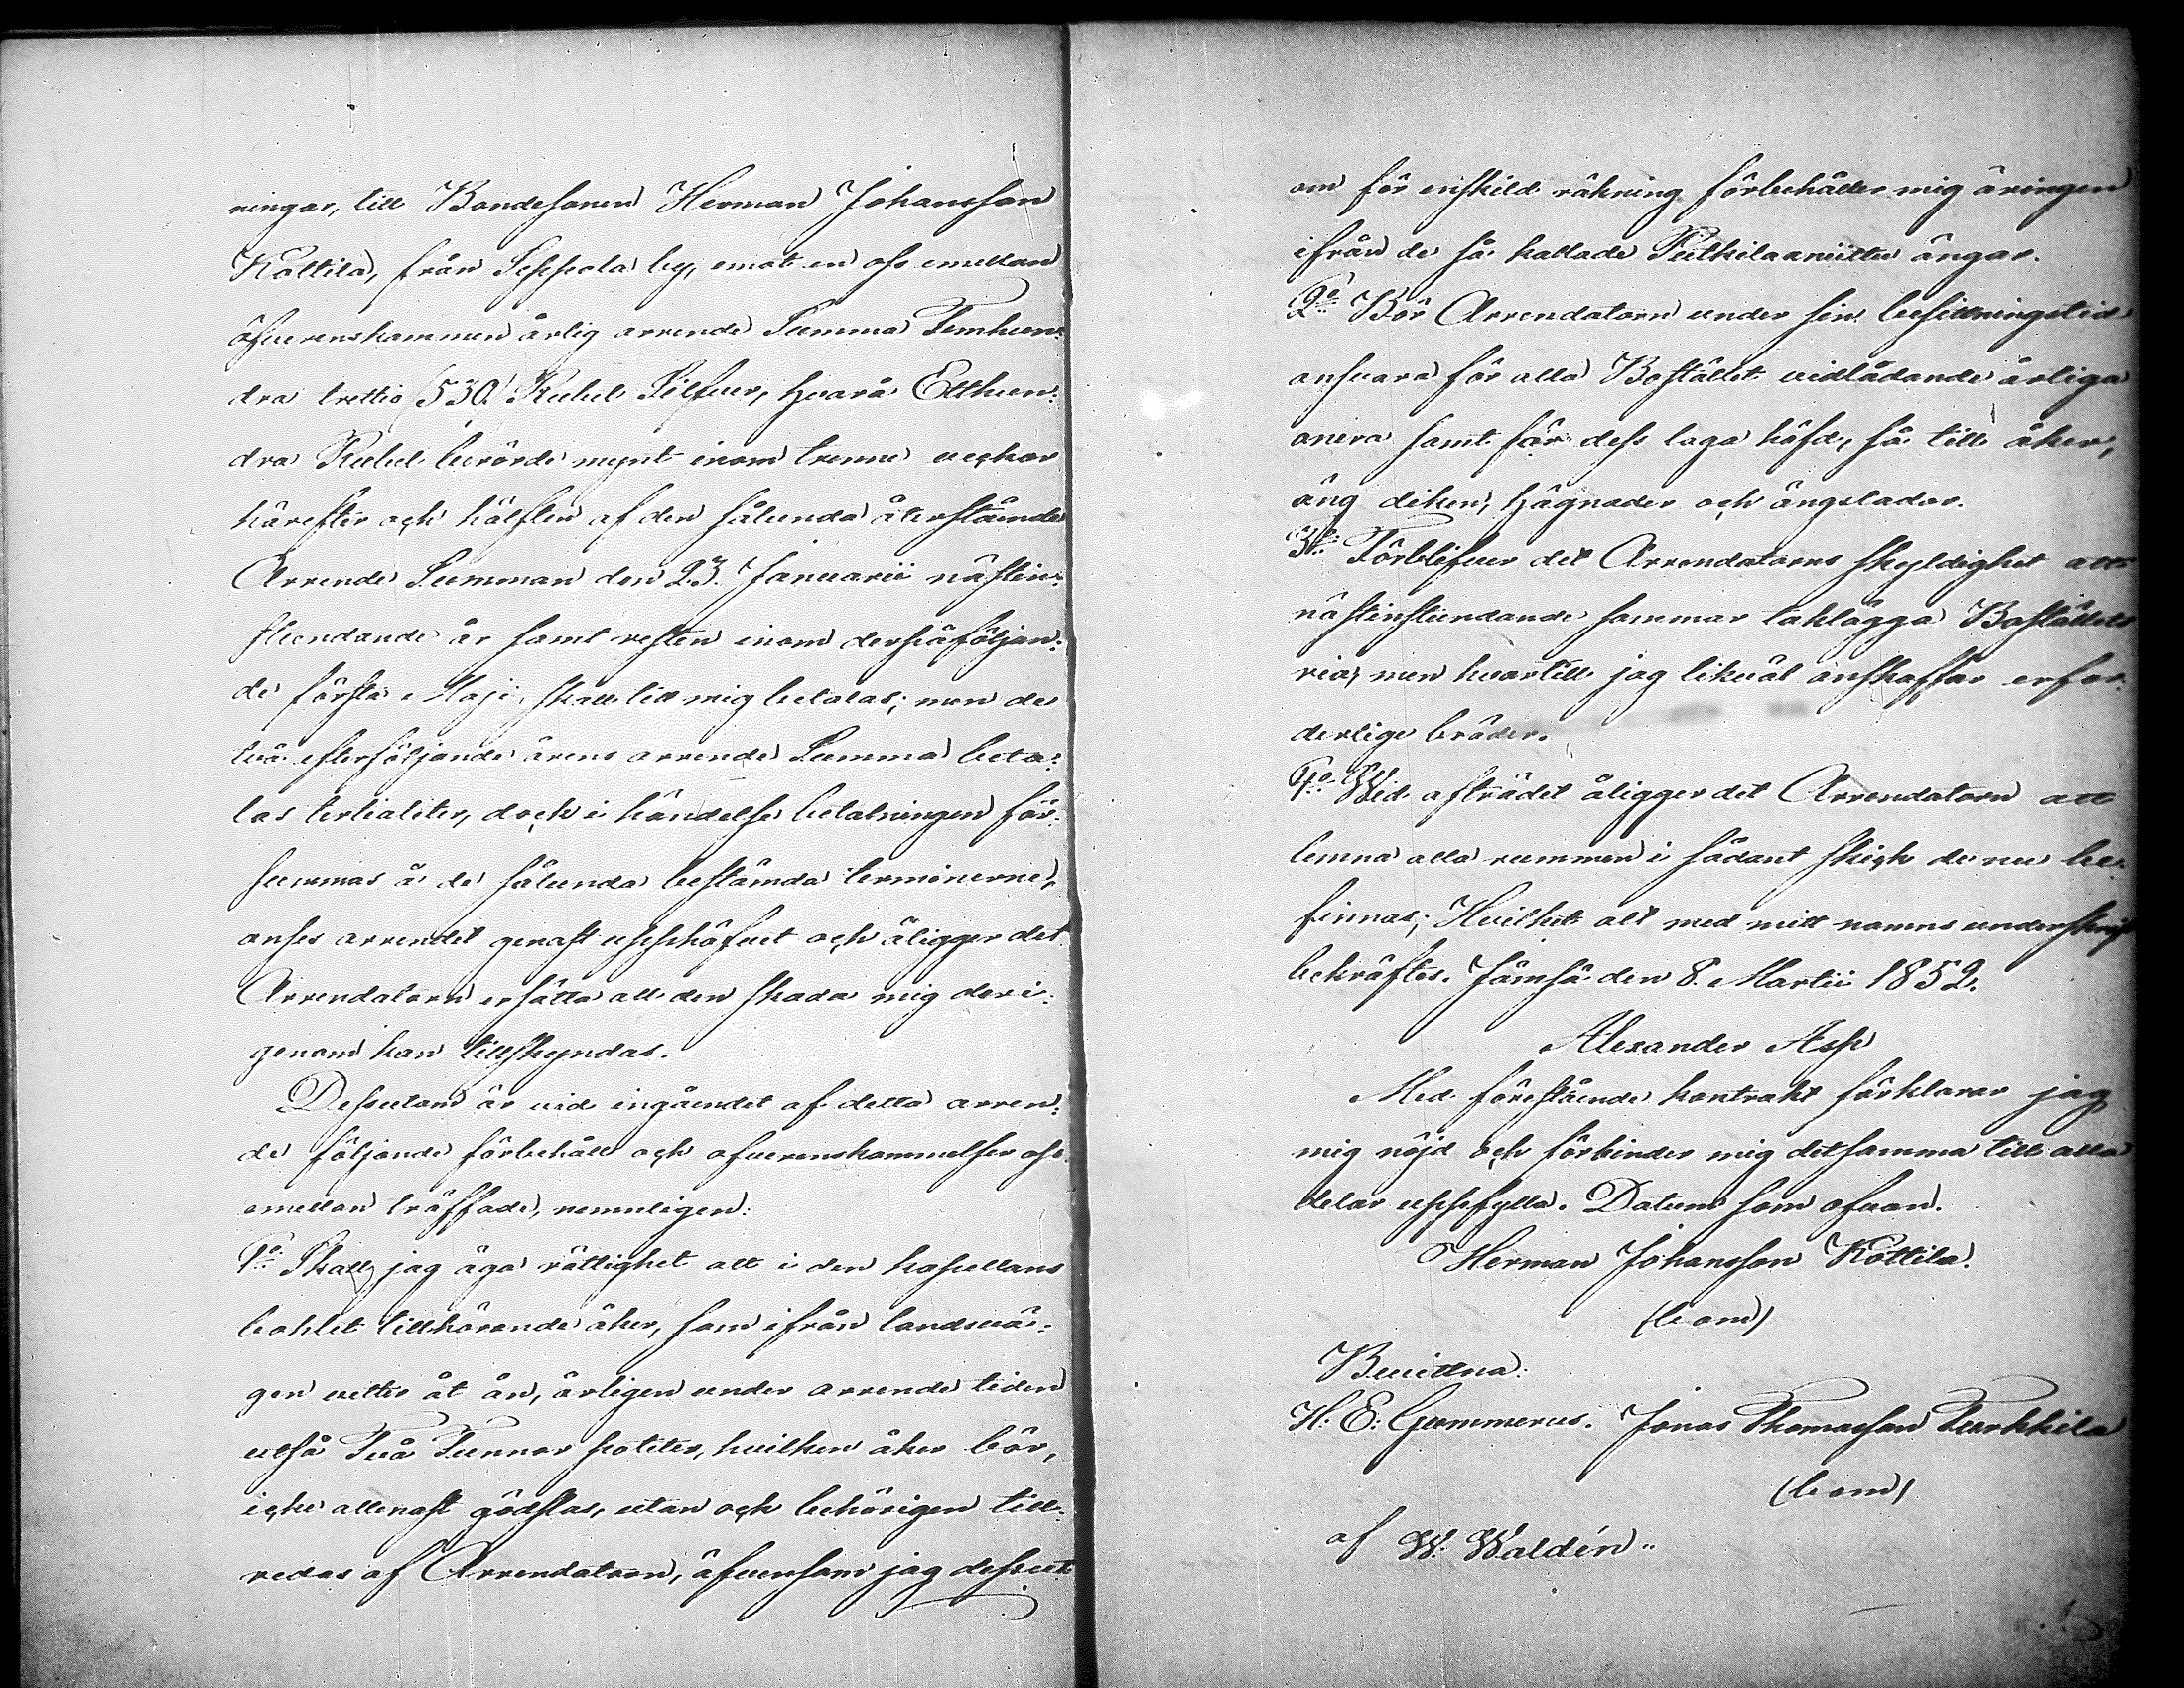 ningar, till Bondesonen Herman Johansson
Kottila, från Seppola by, emot en oss emellan
öfverenskommen årlig arrende Summa Femhun-
dra trettio (530) Rubel Silfver, hvarå Etthun-
dra Rubel berörde mynt inom trenne veckor
härefter och hälften af den sålunda återstående
Arrende Summan den 23. Januarii nästin-
stundande år samt resten inom derpåföljan-
de första Maji, skall till mig betalas; men de
två efterföljande årens arrende Summa beta-
las tertialiter, dock i händelse betalningen för-
summas å de sålunda bestämda terminerne,
anses arrendet genast upphäfvet och åligger det
Arrendatorn ersätta all den skada mig deri-
genom kan tillskyndas.
Dessutom är vid ingåendet af detta arren-
de följande förbehåll och öfverenskommelser oss
emellan träffade, nemnligen:
1o Skall jag äga rättighet att i den kapellans
bohlet tillhörande åker, som ifrån landsvä-
gen vetter åt ån, årligen under arrende tiden
utså Två Tunnor potäter, hvilken åker bör,
icke allenast gödslas, utan och behörigen till-
redas af Arrendatorn, äfvensom jag dessut-
om för enskild räkning förbehåller mig äringen
ifrån de så kallade ängar.
2o Bör Arrendatorn under sin besittningstid
ansvara för alla Bostället vidlådande årliga
onera samt för dess laga häfd, så till åker,
äng diken, hägnader och ängslador.
3o Förblifver det Arrendatorns skyldighet att
nästinstundande sommar taklägga Boställets
ria, men hvartill jag likväl anskaffar erfor-
derlige bräder.
4o Wid afträdet åligger det Arrendatorn att
lemna alla rummen i sådant skick de nu be-
finnas; Hvilket allt med mitt namns underskrift
bekräftes. Jämsä den 8. Martii 1852.
Alexander Asp
Med förestående kontrakt förklarar jag
mig nöjd och förbinder mig detsamma till alla
delar uppfylla. Datum som ofvan.
Herman Johansson Kottila.
(bom)
Bevittna:
H: E: Gummerus. Jonas Thomasson Turkkila
(bom)
af W. Waldén.